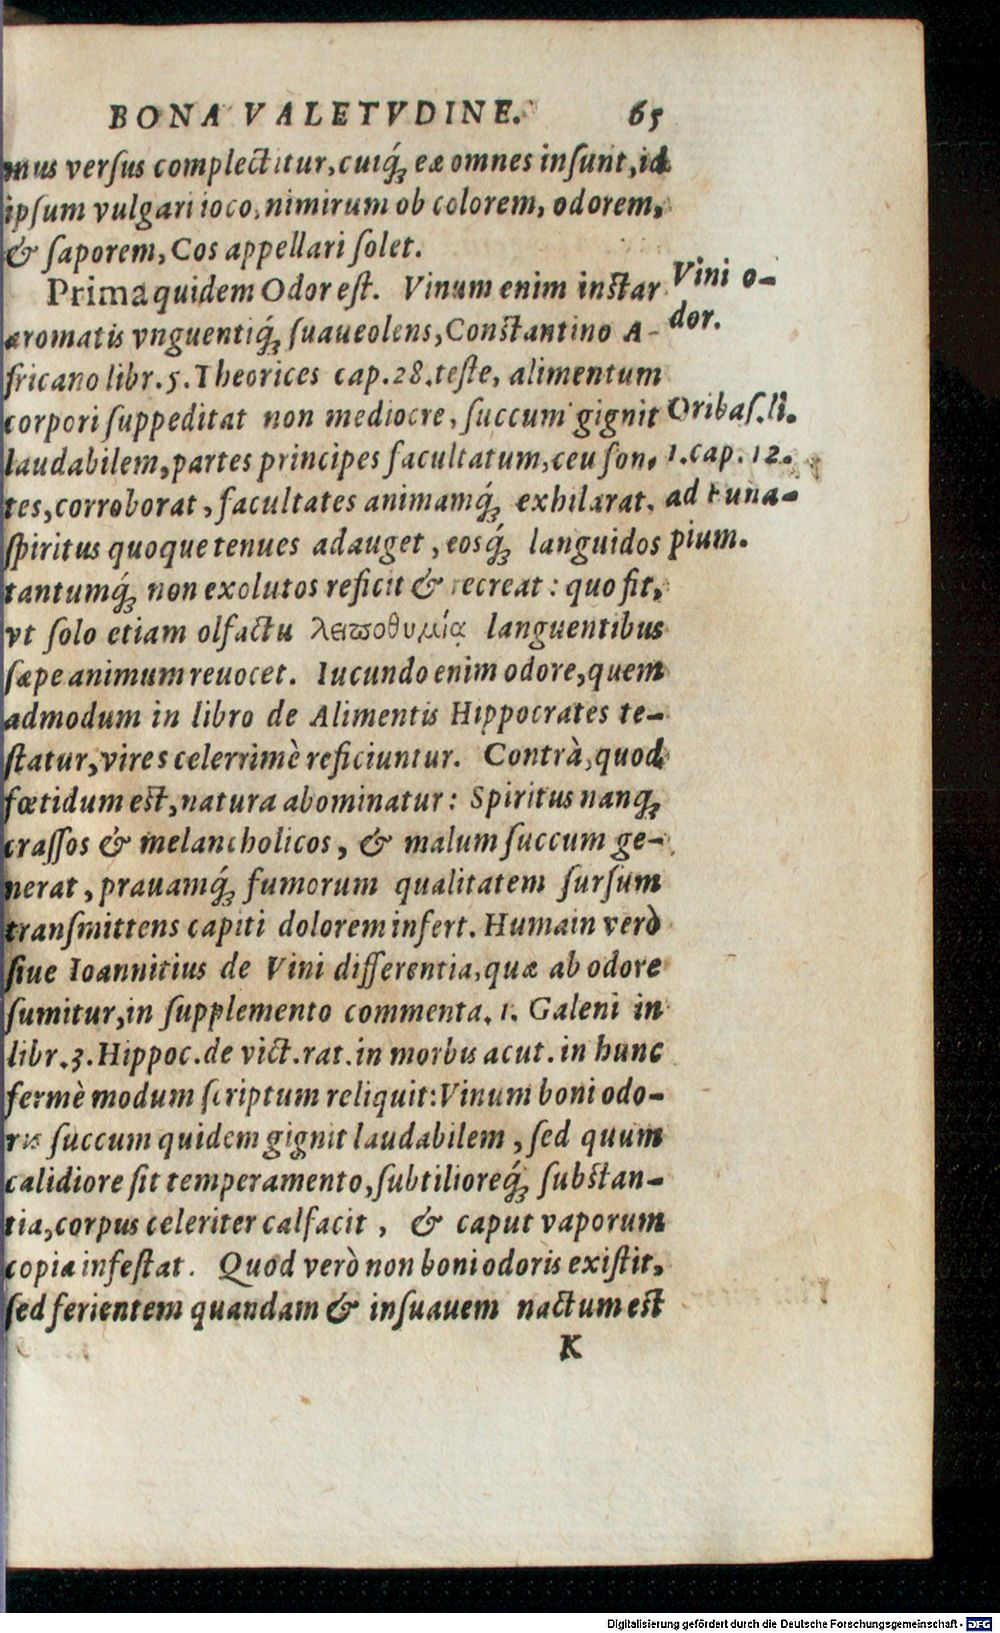 BONA VALETVDINE. 65
mus versus complectitur, cuiq́ꝫ eæ omnes insunt, id
ipsum vulgari ioco, nimirum ob colorem, odorem,
& saporem, Cos appellari solet.
Prima quidem Odor est. Vinum enim instar
aromatis vnguentiq́ꝫ suaueolens, Constantino A-
fricano libr. 5. Theorices cap. 28. teste, alimentum
corpori suppeditat non mediocre, succum gignit
laudabilem, partes principes facultatum, ceu fon,
tes, corroborat, facultates animamq́ꝫ exhilarat,
spiritus quoque tenues adauget, eosq́ꝫ languidos
tantumq́ꝫ non exolutos reficit & recreat: quo fit,
vt solo etiam olfactu λειποθυμίᾳ languentibus
sæpe animum reuocet. Iucundo enim odore, quem
admodum in libro de Alimentis Hippocrates te-
statur, vires celerrimè reficiuntur. Contrà, quod
fœtidum est, natura abominatur: Spiritus nanqꝫ
crassos & melancholicos, & malum succum ge-
nerat, prauamq́ꝫ fumorum qualitatem sursum
transmittens capiti dolorem infert. Humain verò
siue Ioannitius de Vini differentia, quæ ab odore
sumitur, in supplemento commenta. 1. Galeni in
libr. 3. Hippoc. de vict. rat. in morbis acut. in hunc
fermè modum scriptum reliquit: Vinum boni odo-
ris succum quidem gignit laudabilem, sed quum
calidiore sit temperamento, subtilioreq́ꝫ substan-
tia, corpus celeriter calfacit, & caput vaporum
copia infestat. Quod verò non boni odoris existit,
sed ferientem quandam & insuauem nactum est
K
Vini o-
dor.
Oribas. li.
1. cap. 12.
ad Euna-
pium.
Digitalisierung gefördert durch die Deutsche Forschungsgemeinschaft - DFG